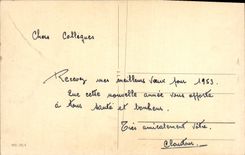 Chers Collègues
Recevez mes meilleurs vœux pour 1953.
Que cette nouvelle année vous apporte
à tous santé et bonheur.
Très amicalement vôtre.